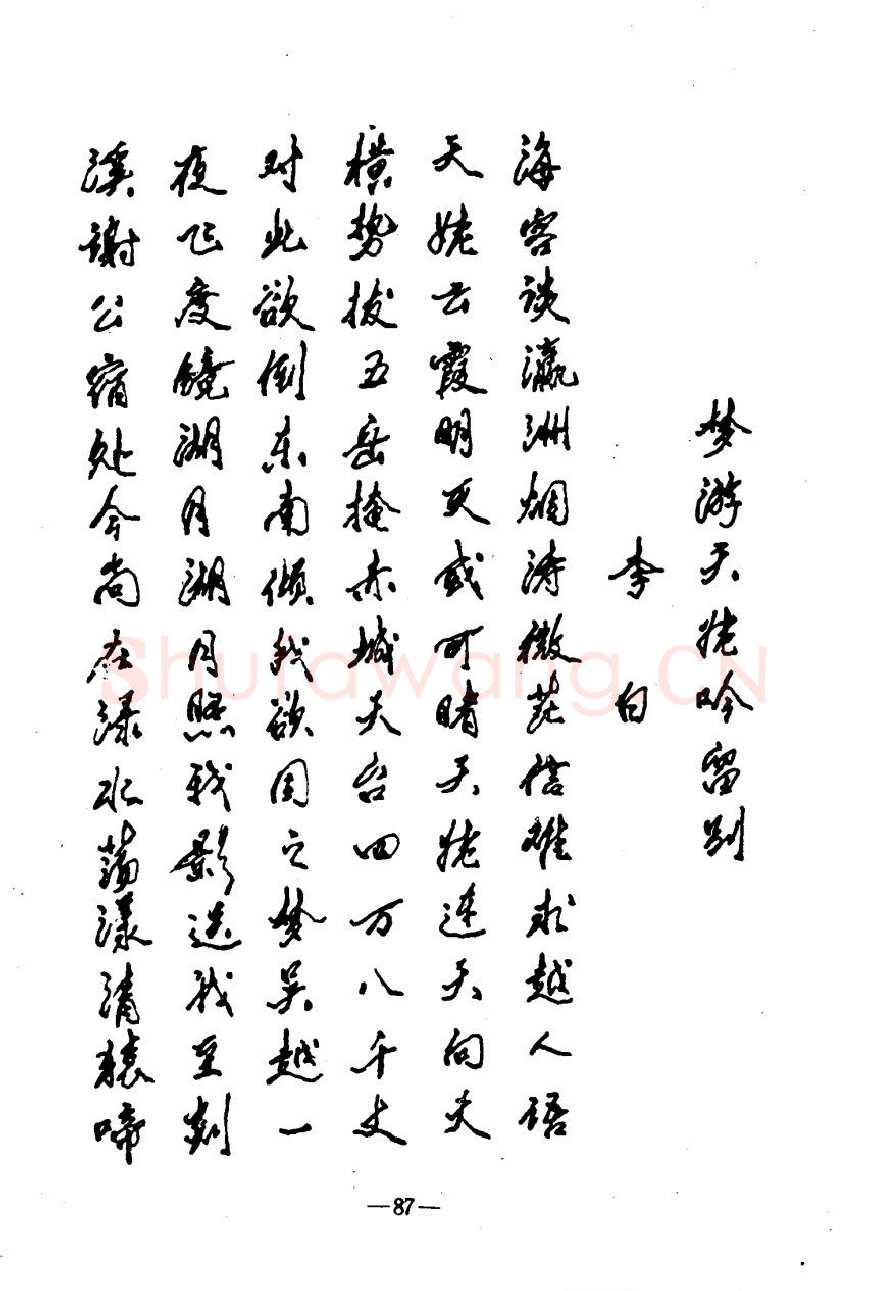 梦游天姥吟留别
李白
海客谈瀛洲烟涛微茫信难求越人语
天姥云霞明灭或可睹天姥连天向天
横势拔五岳掩赤城天台四万八千丈
对此欲倒东南倾我欲因之梦吴越一
夜飞度镜湖月湖月照我影送我至剡
溪谢公宿处今尚在渌水荡漾清猿啼
—87—
Shufawang.CN